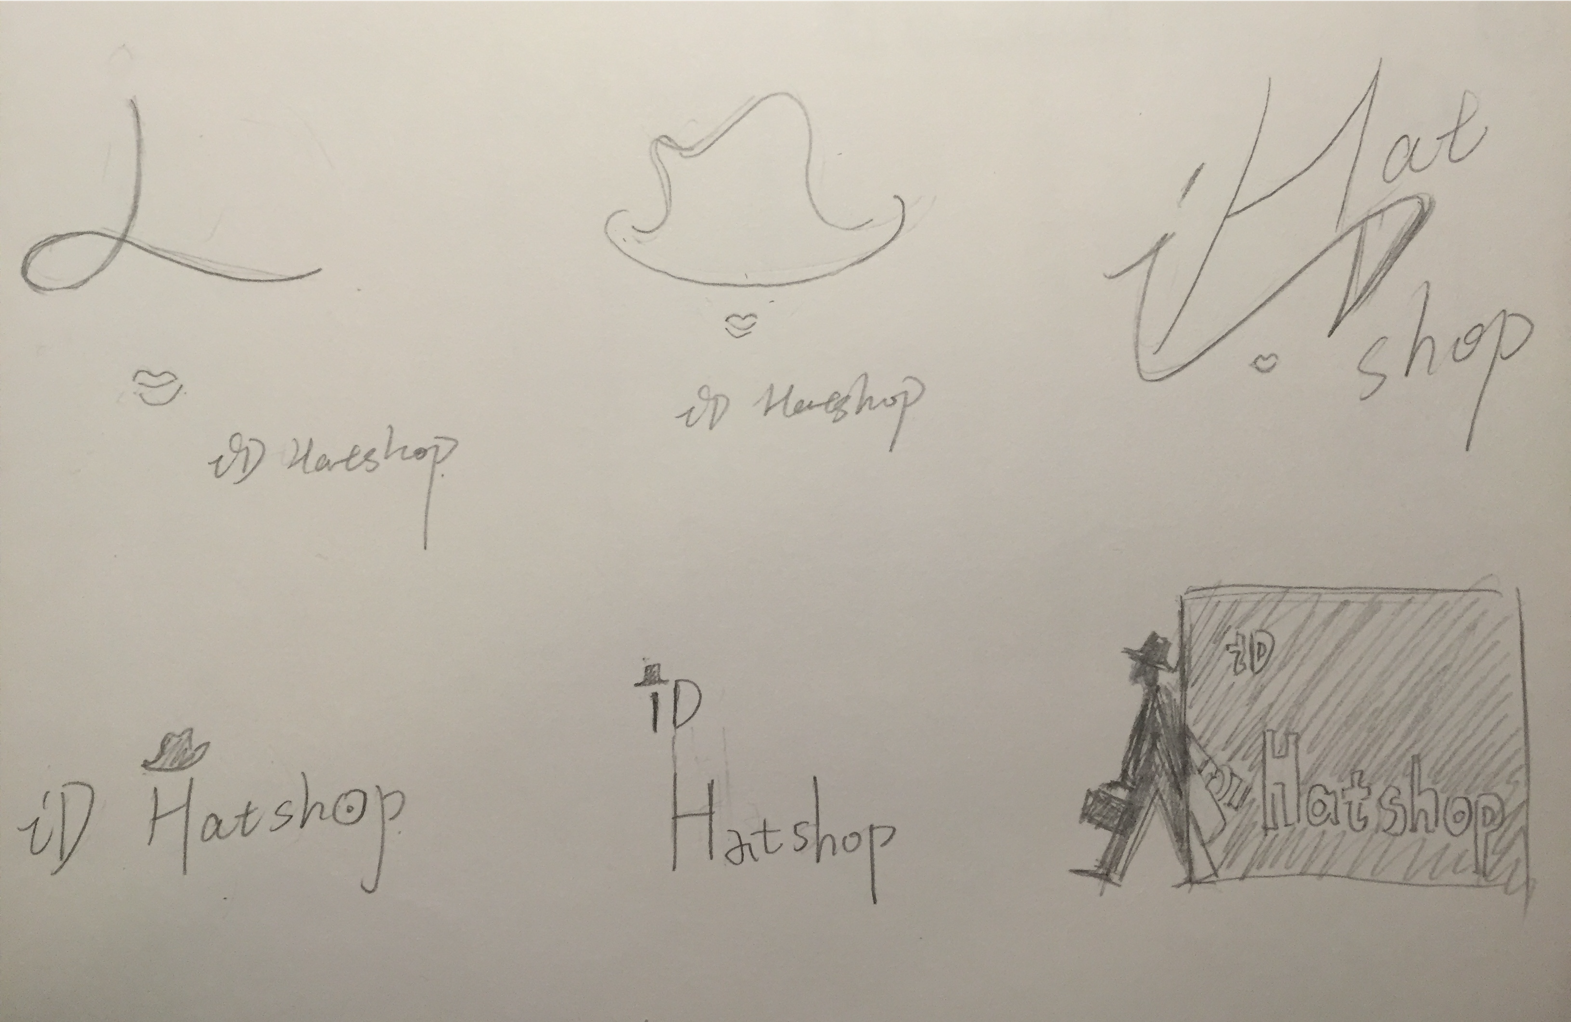 iD Hatshop
iD Hatshop
iHat
D
shop
iD Hatshop
iD
Hatshop
iD
Hatshop